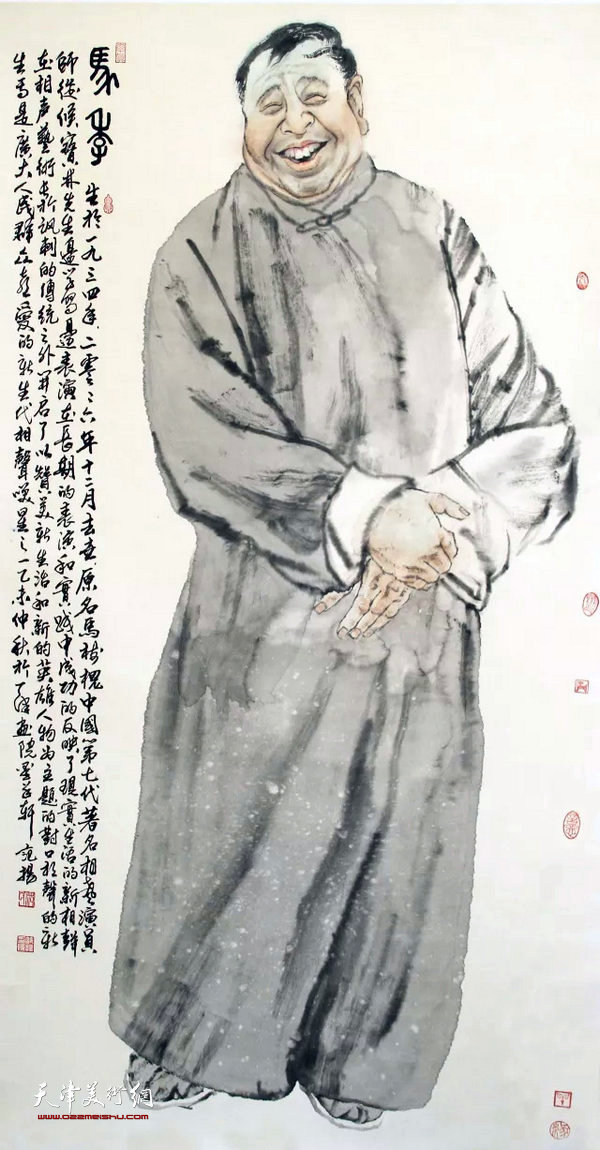 馬季
生於一九三四年二零零六年十二月去世原名馬樹槐中國第七代著名相聲演員
師從侯寶林先生邊學習邊表演在長期的表演和實踐中成功的反映了現實生活的新相聲
在相声藝術長於諷刺的傳統之外開启了以贊美新生活和新的英雄人物为主題的對口相聲的新
生焉是廣大人民群众喜愛的新生代相聲笑星之一乙未仲秋於畫院軒
天津美術網
www.022meishu.com